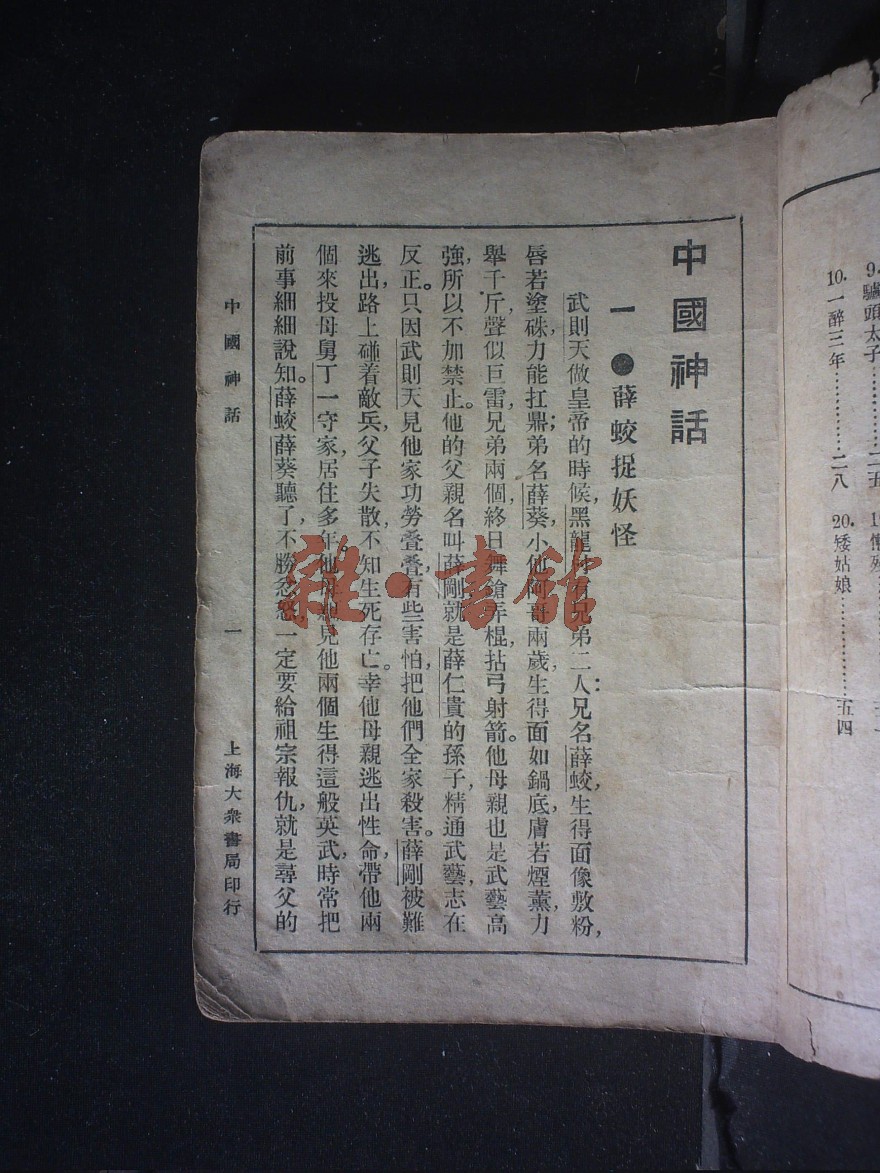 中國神話
一●薛蛟捉妖怪
武則天做皇帝的時候,黑龍村有兄弟二人:兄名薛蛟,生得面像敷粉,
唇若塗硃,力能扛鼎;弟名薛葵,小他阿哥兩歲,生得面如鍋底,膚若煙薰,力
舉千斤,聲似巨雷,兄弟兩個,終日舞鎗弄棍,拈弓射箭。他母親也是武藝高
強,所以不加禁止。他的父親名叫薛剛,就是薛仁貴的孫子,精通武藝,志在
反正。只因武則天見他家功勞叠叠,有些害怕,把他們全家殺害。薛剛被難
逃出,路上碰着敵兵,父子失散,不知生死存亡。幸他母親逃出性命,帶他兩
個來投母舅丁一守家,居住多年。他母親見他兩個生得這般英武,時常把
前事細細說知。薛蛟薛葵聽了,不勝忿怒,一定要給祖宗報仇,就是尋父的
中國神話 一 上海大衆書局印行
9.驢頭太子…………二五
10.一醉三年…………二八
20.矮姑娘…………五四
雜·書館